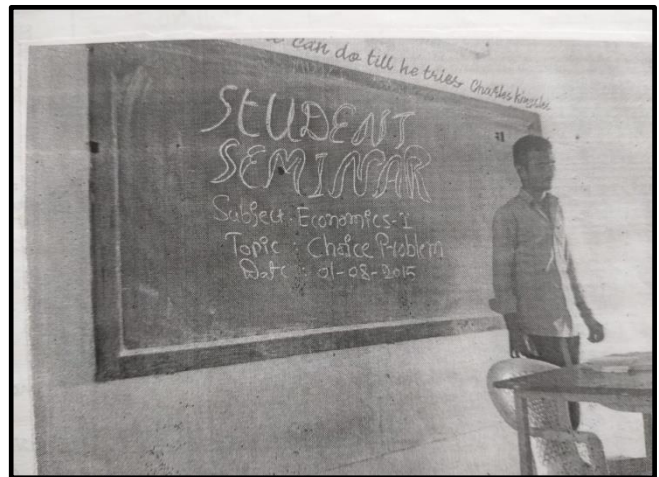 can do till he tries Charles Kingsley
STUDENT
SEMINAR
Subject : Economics-I
Topic : Choice Problem
Date : 01-08-2015